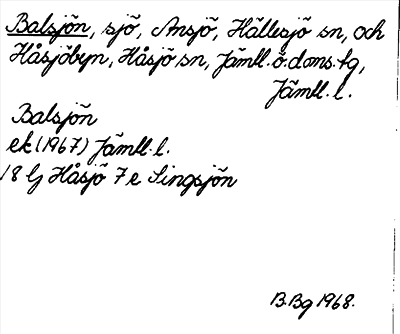 Balsjön, sjö, Ansjö, Hällesjö sn, och
Håsjöbyn, Håsjö sn, Jämtl. ö. doms. tg,
Jämtl. l.
Balsjön
ek (1967) Jämtl. l.
18 G Håsjö 7 e Singsjön
B.Bg 1968.